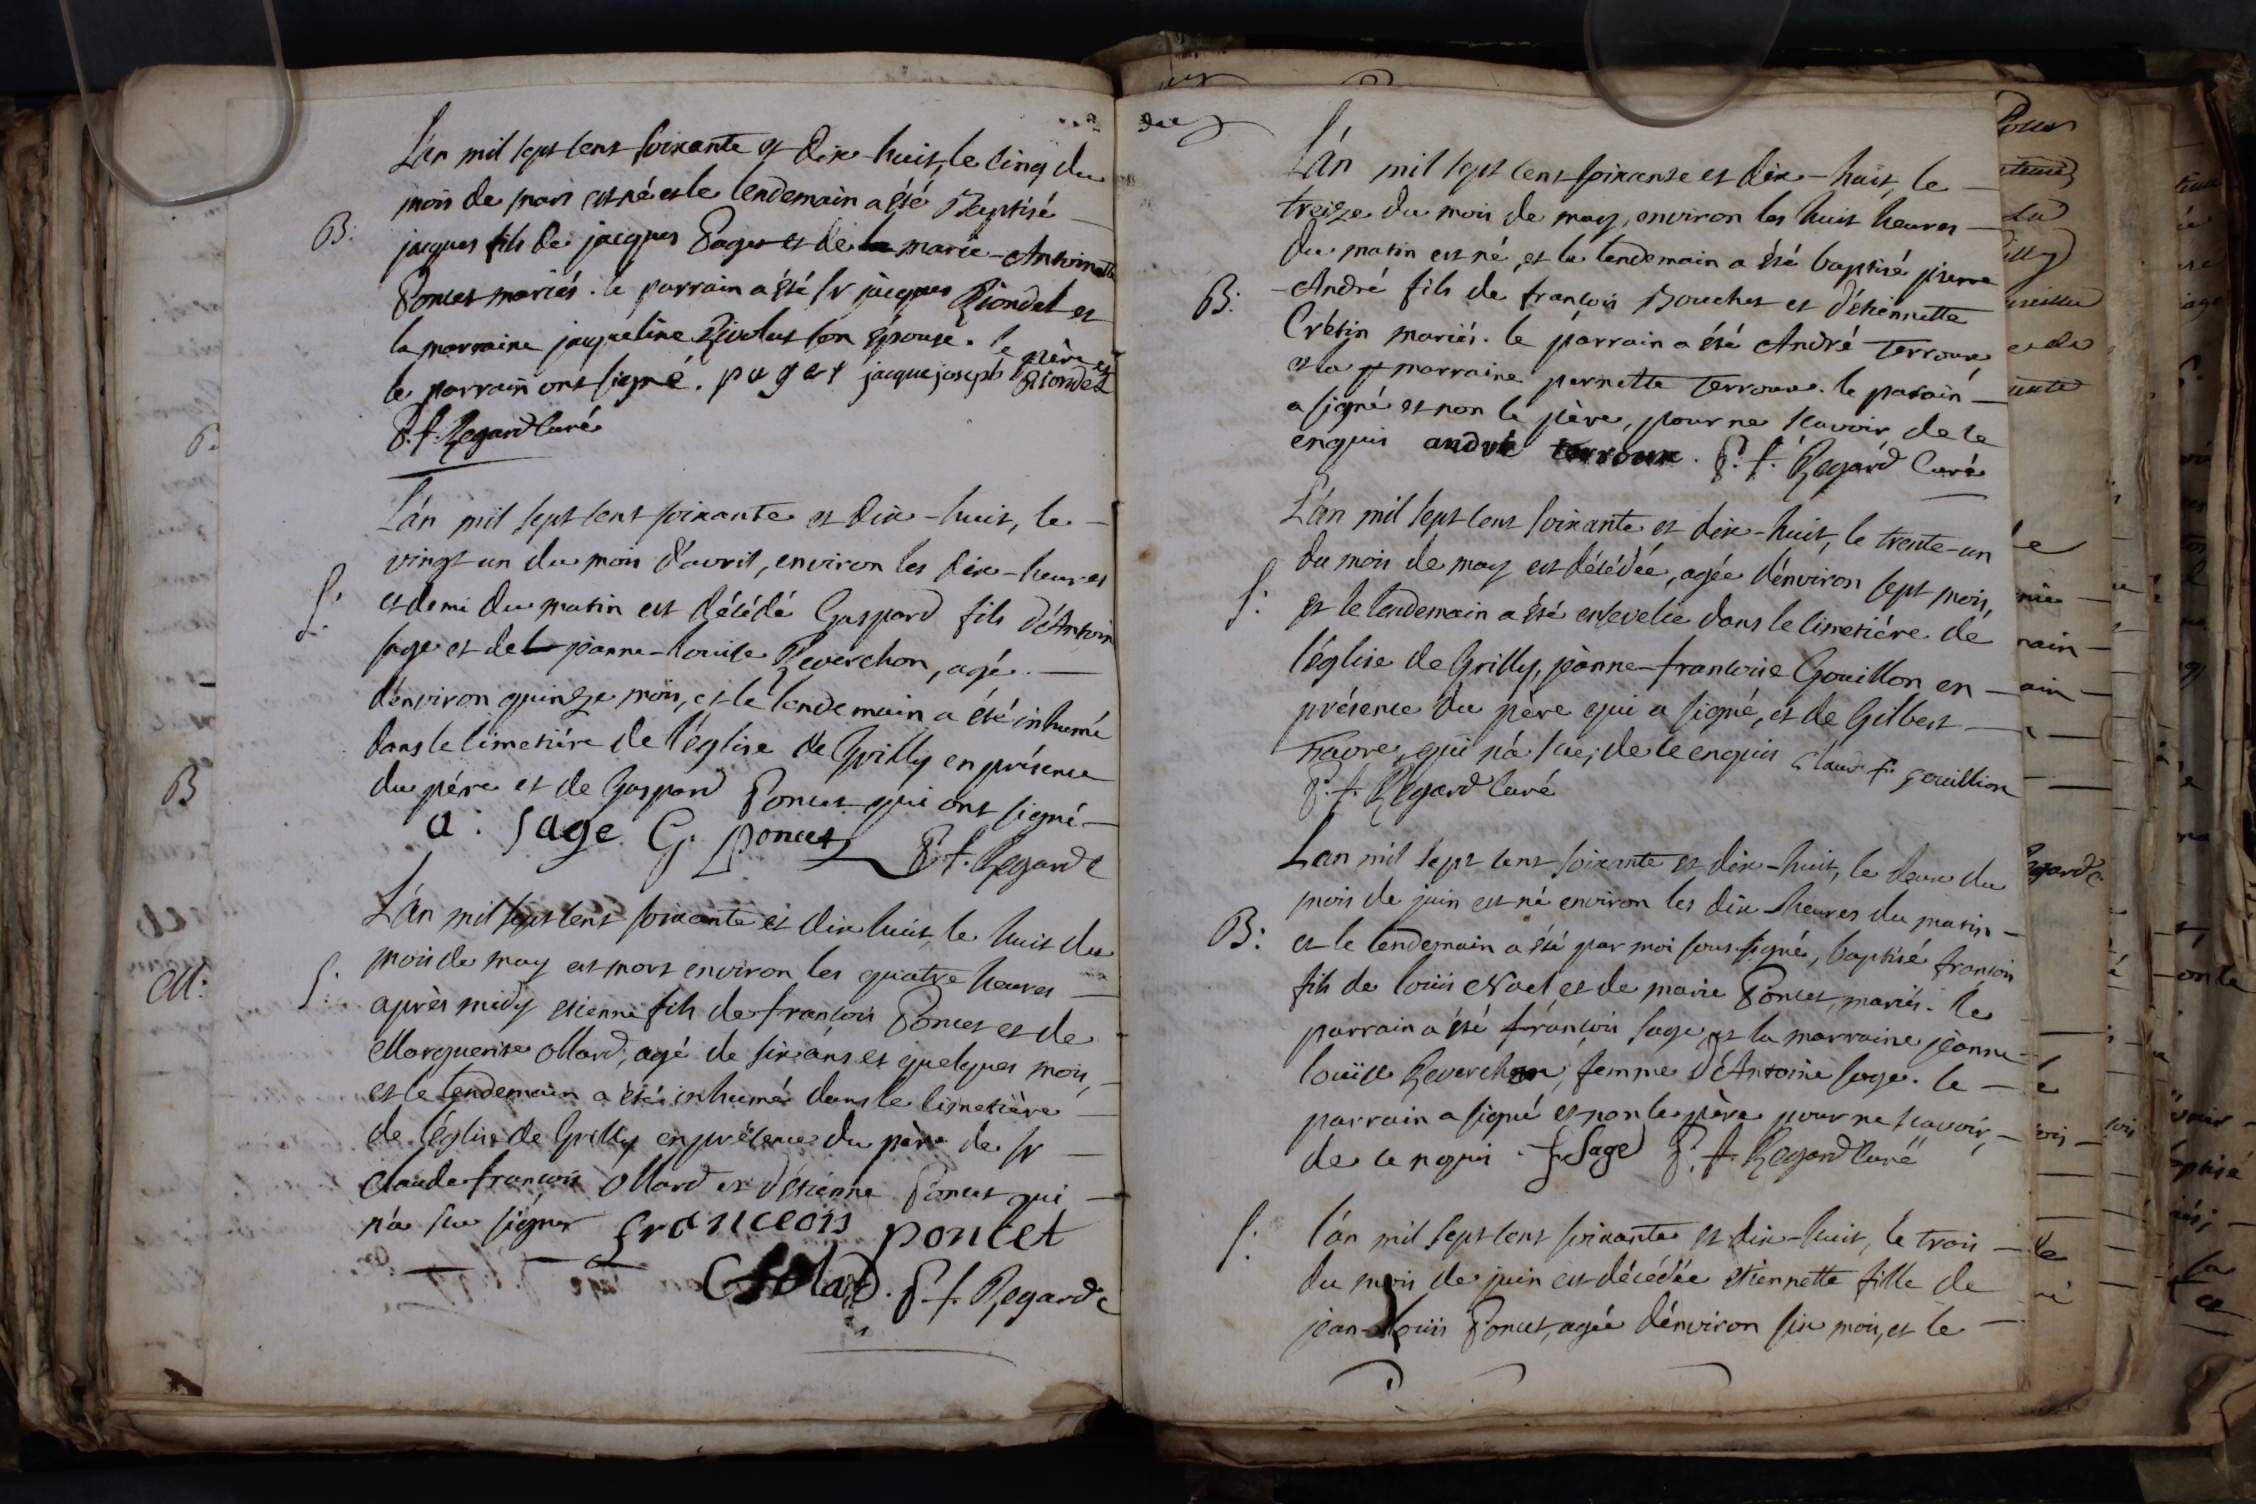 L'an mil sept cent soixante et dix-huit, le cinq du
mois de mars est né et le lendemain a été Baptisé
B:
jacques fils de jacques Paget et de la marie-Antoinette
Poncet mariés. le parrain a été Sr jacques Riondel et
la marraine jacqueline son épouse. le père et
le parrain ont signé. paget jacque joseph Riondel
P. f. Regard Curé
L'an mil sept cent soixante et dix-huit, le
vingt-un du mois d'avril, environ les dix-heures
S:
et demi du matin est décédé Gaspard fils d'Antoine
sage et de jeanne-louise Reverchon, agé
d'environ quinze mois, et le lendemain a été inhumé
dans le cimetiére de l'église de Grilly en présence
du pére et de Gaspard Poncet qui ont signé
a. Sage G. poncet P. f. Regard c
L'an mil sept cent soixante et dix huit, le huit du
S:
mois de may est mort environ les quatre heures
après midy etienne fils de françois Poncet et de
Marguerite Mard, agé de six ans et quelques mois,
et le lendemain a été inhumé dans le cimetière
de l'église de Grilly en présence du père de Sr
claude françois et d'étienne Poncet qui
n'a su signer franceois poncet
P. f. Regard c
L'án mil sept cent soixante et dix-huit, le
treize du mois de may, environ les huit heures
du matin est né, et le lendemain a été baptisé pierre
B:
André fils de françois Bouchet et d'étiennette
Crétin mariés. le parrain a été André Terroux
et la marraine pernette Terroux. le parain
a signé et non le père, pour ne scavoir, de ce
enquis andré terroux. P. f. Regard Curé
L'án mil sept cent soixante et dix-huit, le trente-un
du mois de may est décédée, agée d'environ sept mois,
S:
et le lendemain a été ensevelie dans le cimetiére de
l'église de Grilly, jeanne-francoise Gouillon en
présence du père qui a signé, et de Gilbert
qui n'a scu, de ce enquis Claud f. gouillion
P. f. Regard Curé
Lan mil sept cent soixante et dix-huit, le deux du
mois de juin est né environ les dix heures du matin
B:
et le lendemain a été par moi soussigné, baptisé françois
fils de louis Noel et de marie Poncet, mariés. le
parrain a été françois sage, et la marraine jeanne
louïse Reverchon, femme d'Antoine sage. le
parrain a signé et non le père pour ne scavoir,
de ce nquis. f. Sage P. f. Regard Curé
S:
l'án mil sept cent soixante et dix-huit, le trois
du mois de juin est décédée etiennette fille de
jean-louis Poncet, agée d'environ six mois, et le